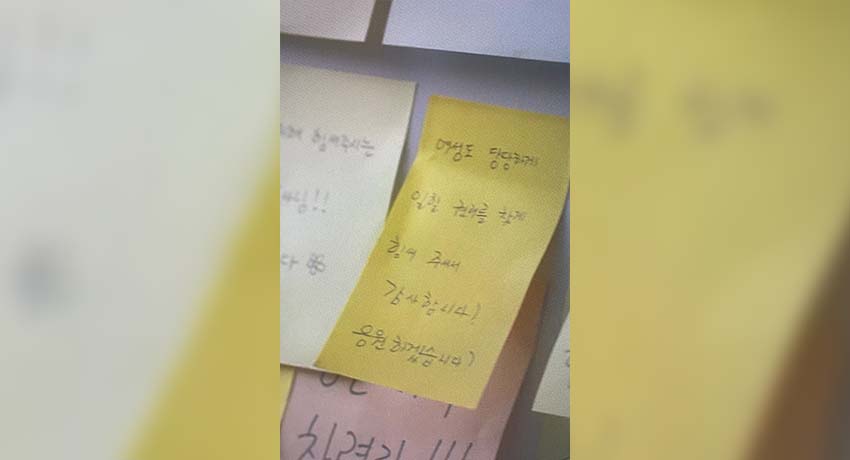 힘써주시는
!!
다
여성도 당당하게
일할 권리를 찾게
힘써 주셔서
감사합니다!
응원하겠습니다!
!!!